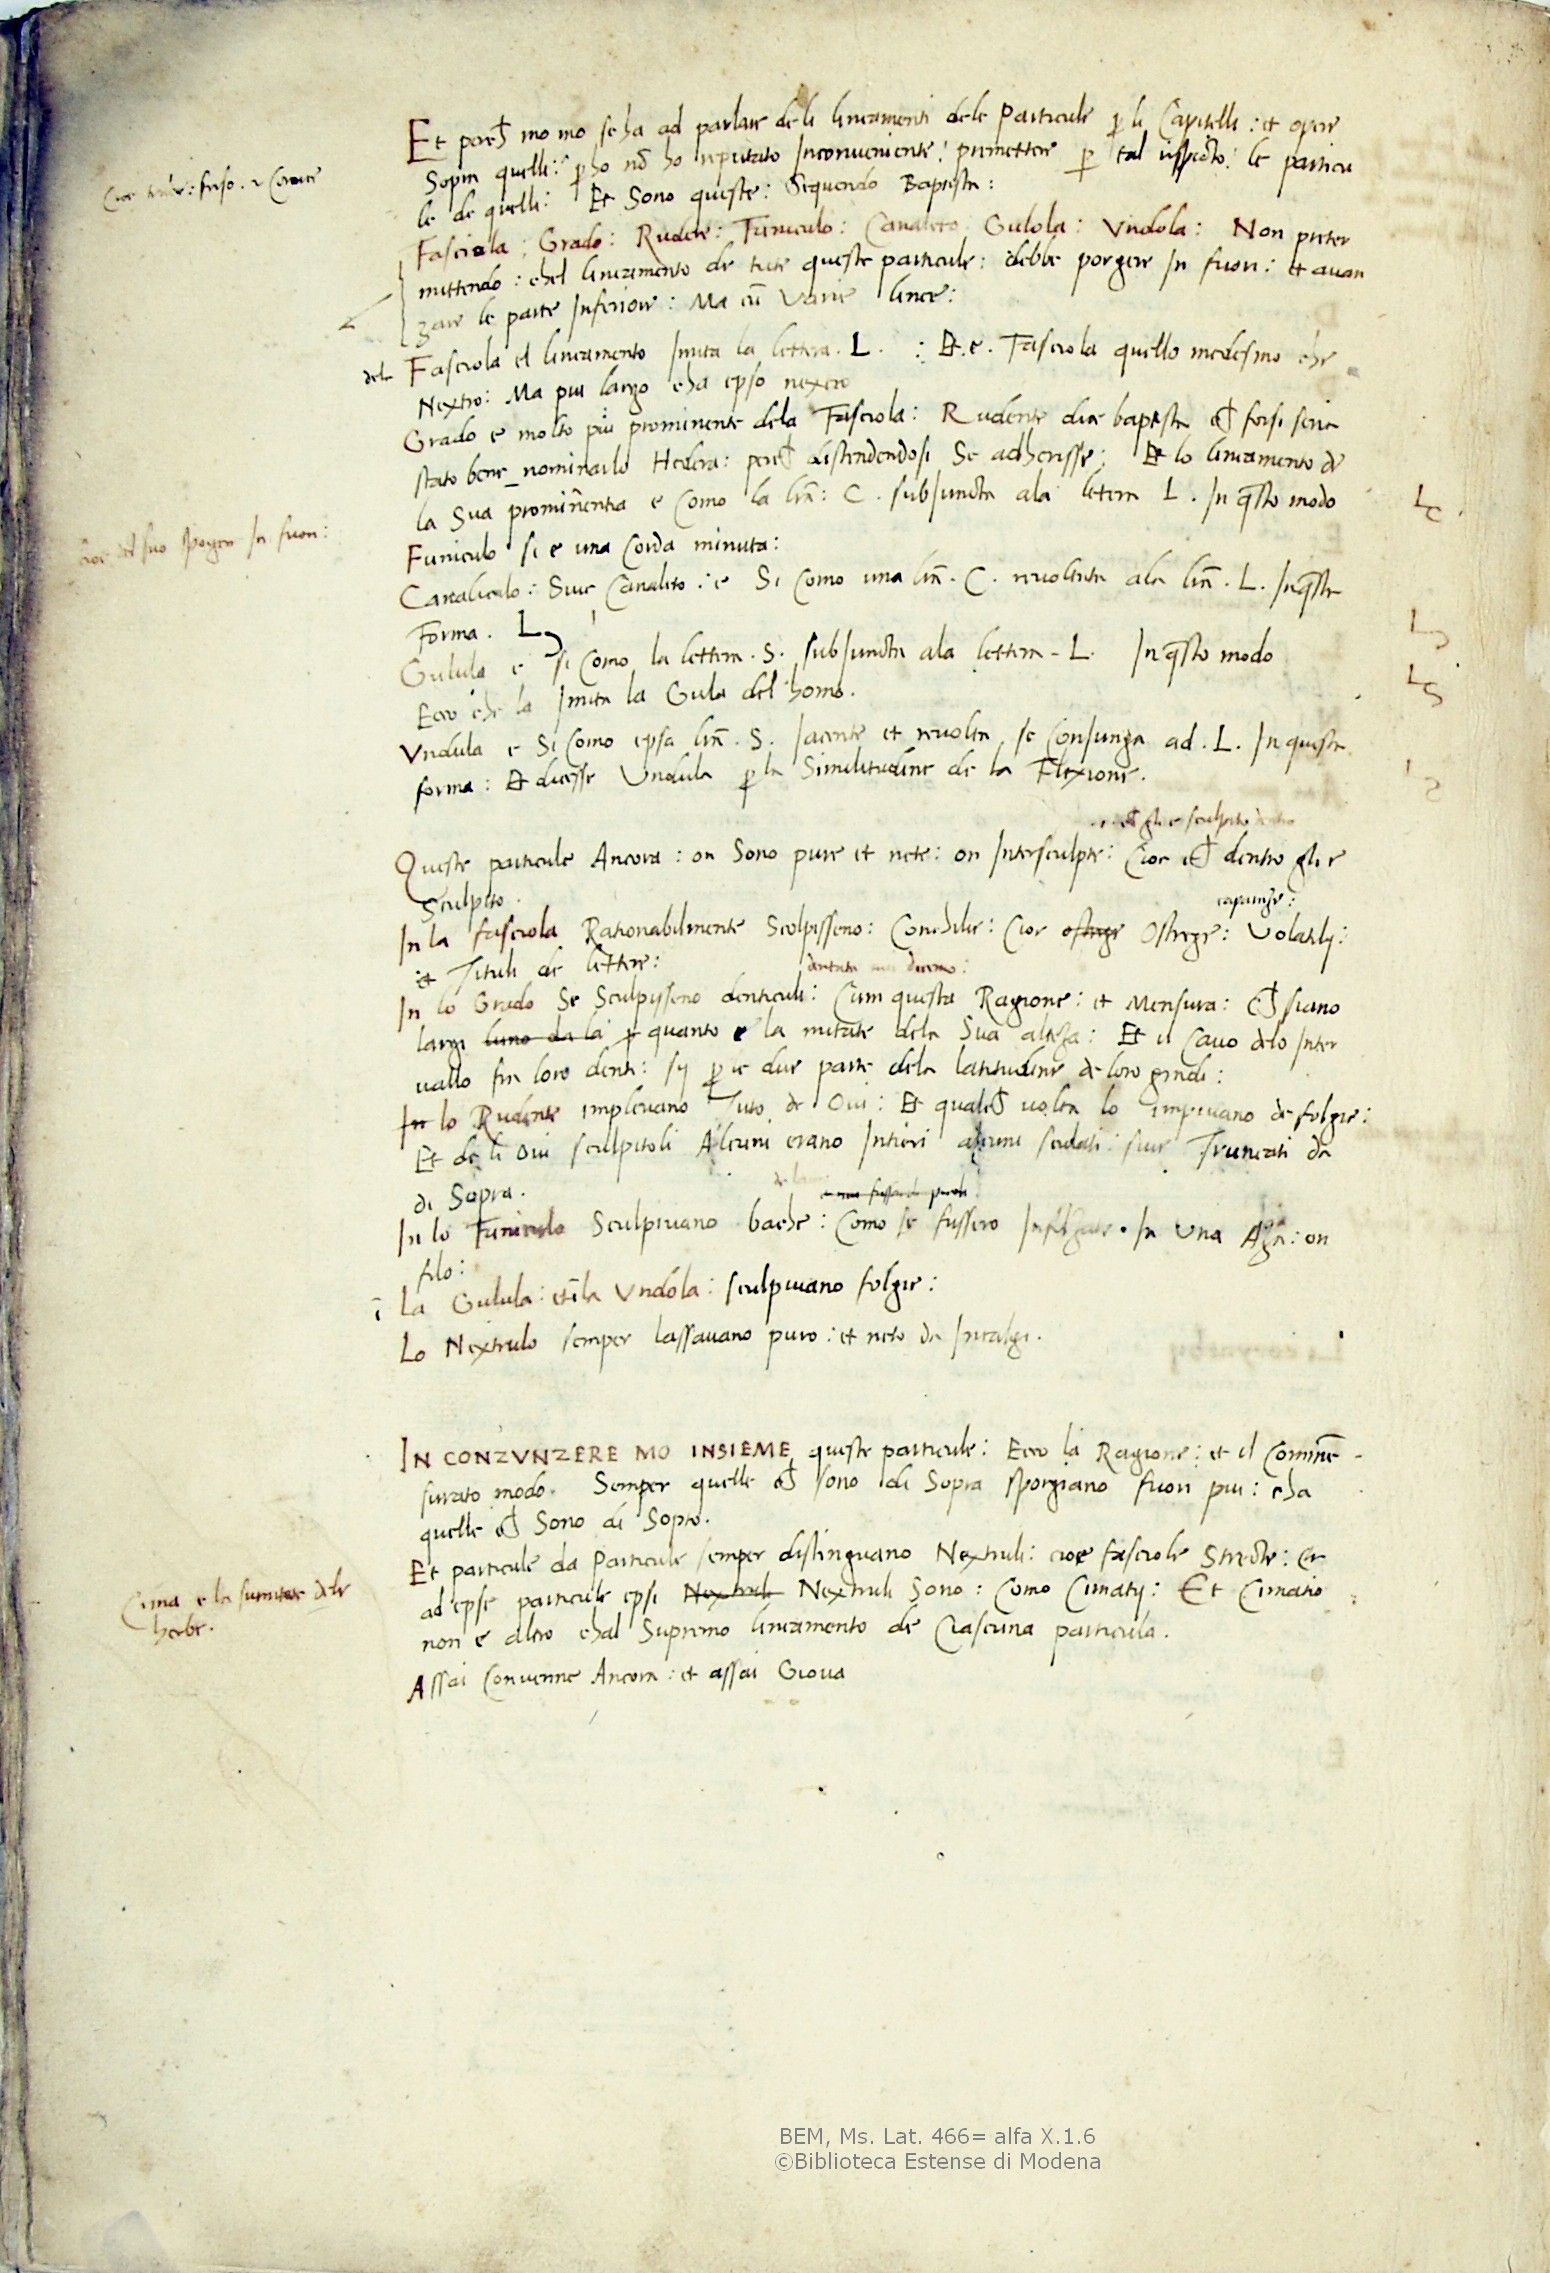 Et perch mo mo se ha ad parlare de li lineamenti dele Particule p li Capitelli : et opere
Cioe trabe : friso . & Cornice
Sopra quelli : pho nō ho reputato Inconueniente : premettere p tal rispecto : le particu
le de quelli : Et Sono queste : Sequendo Baptista :
Fasciola : Grado : Rudete : Funiculo : Canaleto Gulola : Vndola : Non preter
mittendo : chel lineamento de tute queste particule : debbe porgere In fuori : et auan
zare le parte Inferiore : Ma cū Varie linee :
dela Fasciola el lineamento Imita la lettera . L . : Et . e . Fasciola quello medesmo che
Nextro : Ma piu largo cha epso nextro
Grado e molto piu prominente dela Fasciola : Rudente dice baptista ch forsi seria
stato bene_nominarlo Hedera : perch distendendosi Se adherisse : Et lo lineamento de
la Sua prominentia e Como la lrā : C . subiuncta ala letera L . In qsto modo
Lc .
cioe del suo sporgere In fuori :
Funiculo si e una Corda minuta :
Canaliculo : Siue Canaleto : e Si Como una lrā . C . reuoltata ala lrā . L . In qsta
Forma . L
Gulula e si Como la lettera . S . subiuncta ala lettera - L . In qsto modo
LS
Ecco che la Imita la Gula del homo .
Vndula e Si Como epsa lrā . S . Iacente et reuolta se Coniunga ad . L . In questa
forma : Et dicesse Vndula p la Similitudine de la Flexione .
ch gli e sculpito dentro
Queste particule Ancora : on Sono pure et nete : on Intersculpte : Cioe ch dentro gli e
Sculpito .
capunze :
In la fasciola Rationabilmente Scolpisseno : Conchilie : Cioe ostrege Ostrege : Volatily :
et Tituli de lettere :
In lo Grado Se Sculpisseno denticuli : Cum questa Ragione : et Mensura : Ch siano
largi luno da la p quanto e la mitate dela Sua alteza : Et il Cauo delo Inter
uallo fra loro denti : sij p le due parte dela latitudine de loro
In lo Rudente impleuano Tuto de Oui : Et qualch uolta lo impiuano de folgie :
Et de li Oui sculpitoli Alcuni erano Intieri alcuni siue Truncati da
di Sopra .
In lo Funiculo Sculpiuano bache : Como se fussero Infilzate . In Una Aza : on
filo :
ī La Gulula : et ī la Vndola : sculpiuano folgie :
Lo Nextrulo semper lassauano puro : et neto da Intalgi .
IN CONZVNZERE MO INSIEME queste particule : Ecco la Ragione : et il Comīne -
surato modo . Semper quelle ch sono di Sopra sporgiano fuori piu : cha
quelle ch Sono di Sopto .
Et particule da Particule semper distinguano Nextruli : cioe fasciole Strecte : Et
ad epse particule epsi Nextruli Nextruli Sono : Como Cimatij : Et Cimatio
Cima e la sumitate dele
herbe .
non e altro chal Supremo lineamento de Ciascuna particula .
Assai Conuenne Ancora : et assai Gioua
BEM, Ms. Lat. 466= alfa X.1.6
©Biblioteca Estense di Modena